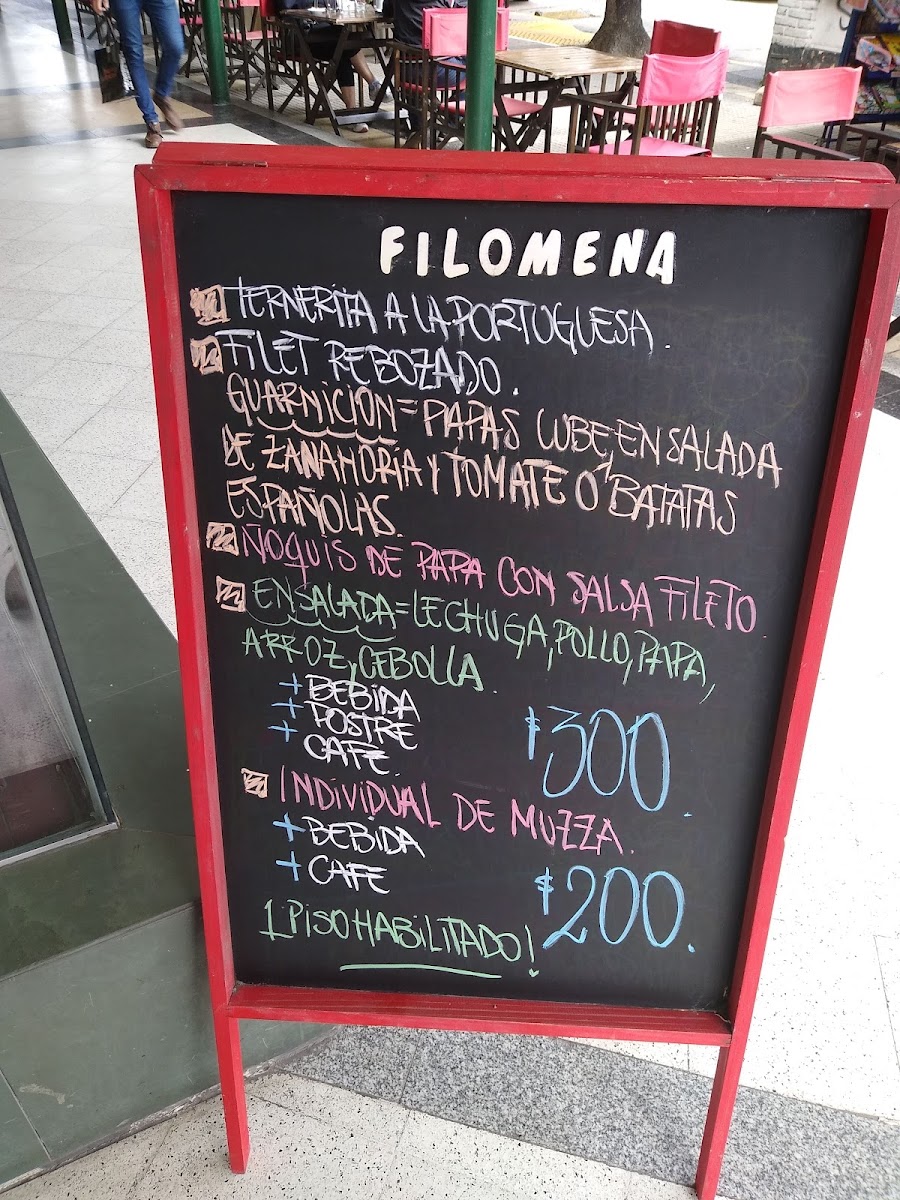 FILOMENA
TERNERITA A LA PORTUGUESA.
FILET REBOZADO.
GUARNICION = PAPAS CUBE, ENSALADA
DE ZANAHORIA Y TOMATE Ó BATATAS
ESPAÑOLAS.
ÑOQUIS DE PAPA CON SALSA FILETO.
ENSALADA = LECHUGA, POLLO, PAPA,
ARROZ, CEBOLLA.
+ BEBIDA
+ POSTRE
+ CAFE.
$300.
INDIVIDUAL DE MUZZA.
+ BEBIDA
+ CAFE
$200.
1 PISO HABILITADO!